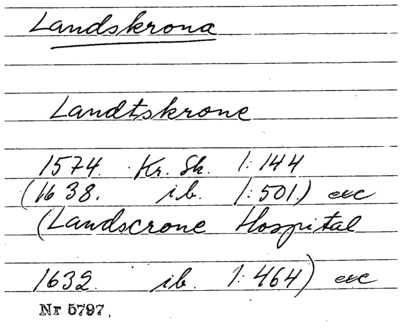 Landskrona
Landtskrone
1574. Kr. Sk. 1:144
(1638. ib. 1:501) exc
(Landscrone Hospital
1632. ib. 1:464) exc
Nr 5797.